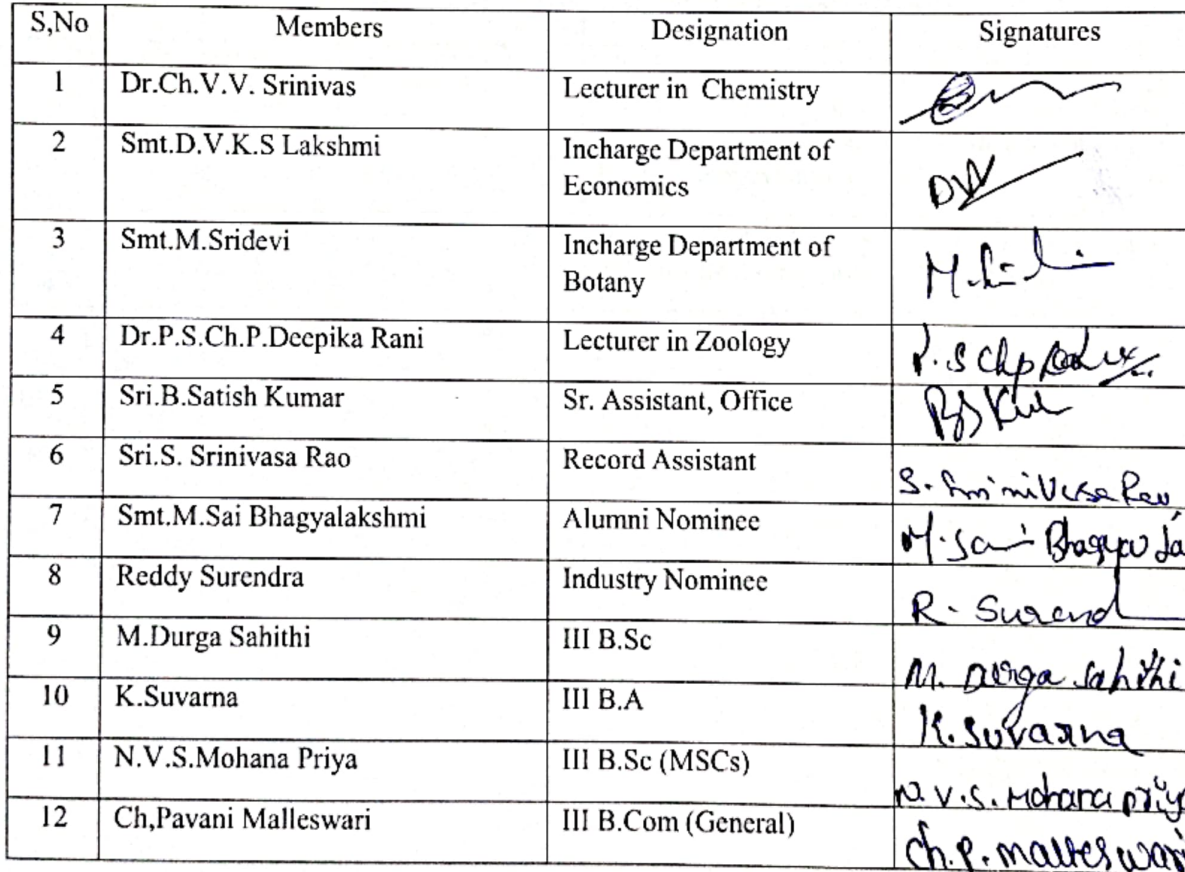 S,No Members Designation Signatures
1 Dr.Ch.V.V. Srinivas Lecturer in Chemistry
2 Smt.D.V.K.S Lakshmi Incharge Department of
Economics
3 Smt.M.Sridevi Incharge Department of
Botany
4 Dr.P.S.Ch.P.Deepika Rani Lecturer in Zoology
5 Sri.B.Satish Kumar Sr. Assistant, Office
6 Sri.S. Srinivasa Rao Record Assistant S. Srinivasa Rao
7 Smt.M.Sai Bhagyalakshmi Alumni Nominee M. Sai Bhagya La
8 Reddy Surendra Industry Nominee R. Surend
9 M.Durga Sahithi III B.Sc M. Durga Sahithi
10 K.Suvarna III B.A K. Suvarna
11 N.V.S.Mohana Priya III B.Sc (MSCs) N.V.S. Mohana priya
12 Ch,Pavani Malleswari III B.Com (General) Ch.P. malleswari